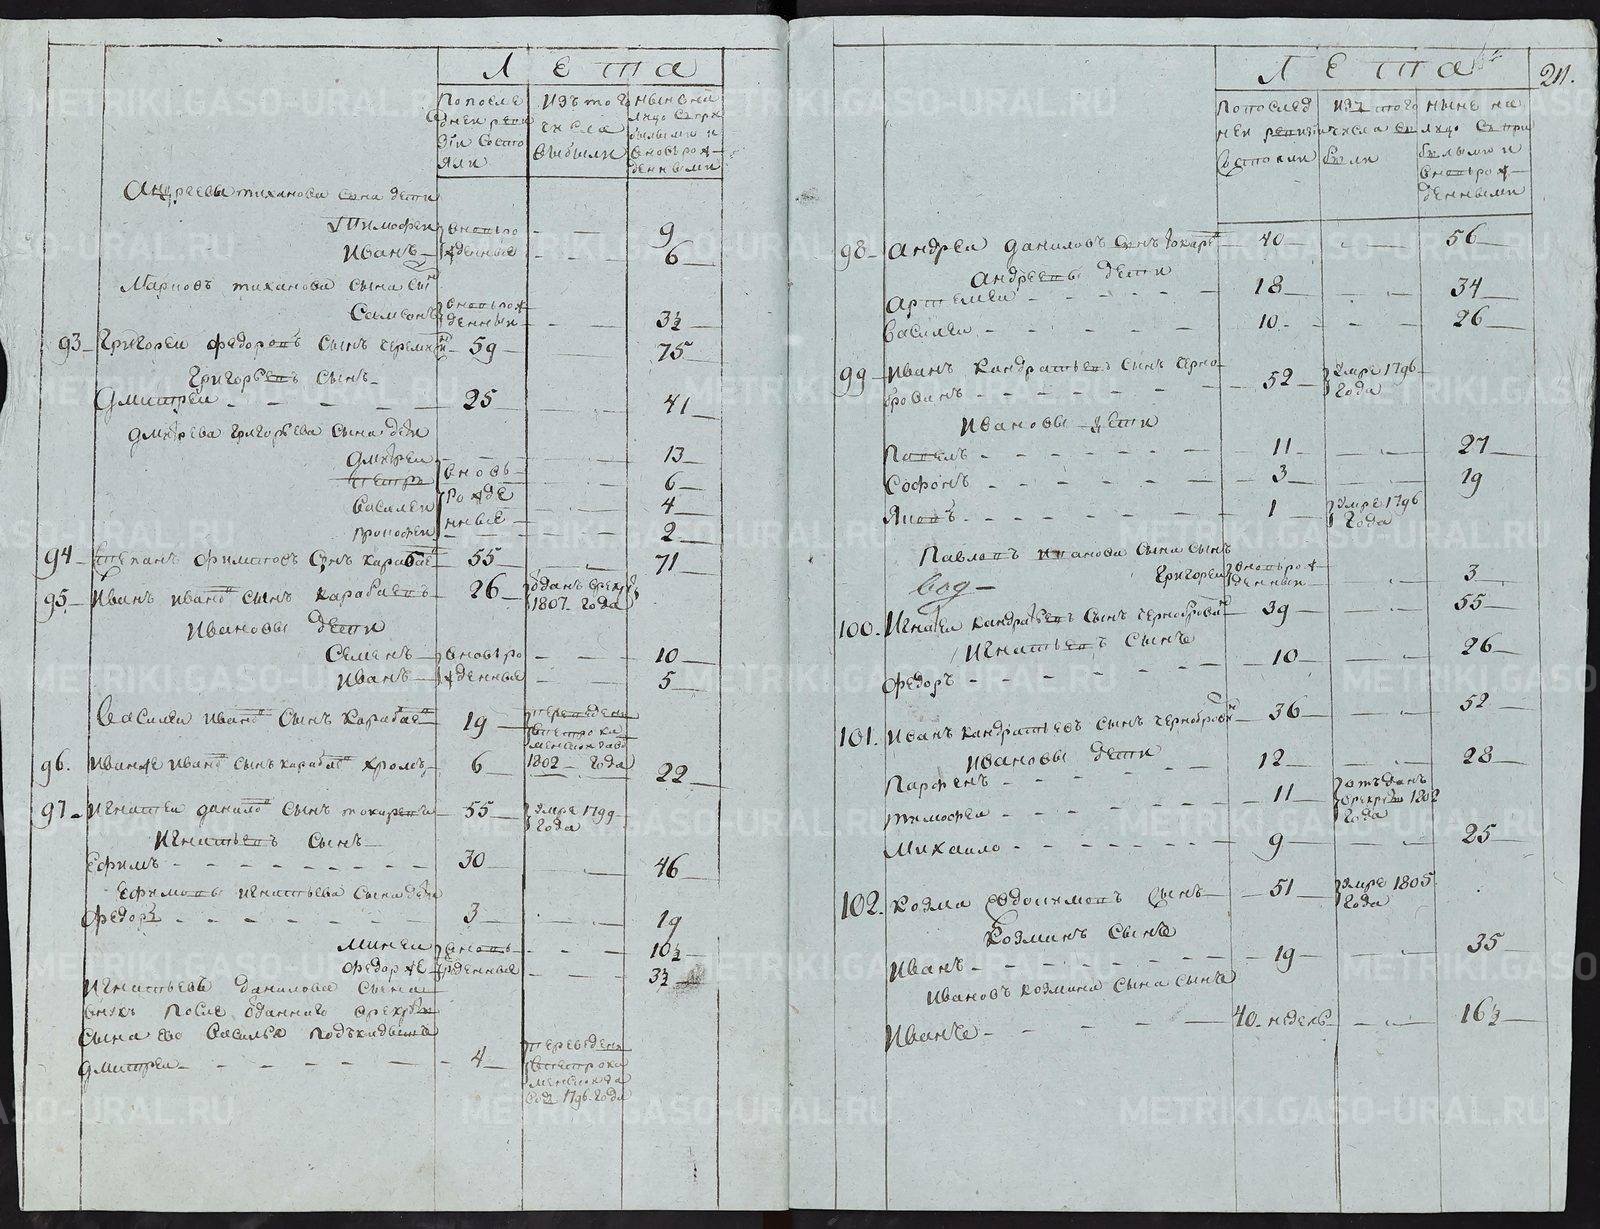 Лета
По после
дней реви
зіи состо
яли
Изъ того
числа
выбыли
Ныне на
лицо съ при
былыми и
вновь рож
денными
Андреевы тиханова сына дети
Тимофеи вновь ро - - 9
Иванъ жденные - - 6
Марковъ тиханова сына сынъ
Самсонъ вновь рож
денныи - - 3½
93 Григореи федоровъ сынъ 59 75
Григорьевъ сынъ
Дмитреи - - - - 25 41
Дмитрева григорьева сына дети
Дмитреи 13
Петръ вновь 6
Василеи рожде 4
Прокофеи нные 2
94 Степанъ сынъ 55 71
95 Иванъ иванов сынъ карабаевъ 26 одан в рекруты
1807 года
Ивановы дети
Семенъ вновь ро - 10
Иванъ жденные - 5
Василеи иванов сынъ карабаев 19 переведен
в петрока
менскои завод
1802 года
96. Иванже иванов сынъ карабаев хромъ 6 22
97 Игнатеи данилов сынъ токаревъ 55 умре 1799
года
Игнатьевъ сынъ
Ефимъ - - - - 30 46
Ефимовы игнатьева сына дети
Федоръ - - - - 3 19
Минеи вновь 10½
Федорже рожденные 3½
Игнатьевы данилова сына
внукъ после отданного в рекруты
сына ево Василья подъкидышъ
Дмитреи - - - - 4 переведен
в петрока
менскои за
вод 1796 года
Лета
21.
По послед
неи ревизіи
состояли
Изъ того
числа вы
были
Ныне на
лицо съ при
былыми и
вновь рож
денными
98 Андреи Даниловъ сынъ токарев 40 56
Андреевы дети
Артемеи - - - - 18 34
Василеи - - - - 10 26
99 Иванъ Кандратьевъ сынъ черно
бровинъ - - - - 52 умре 1796
года
Ивановы дети
Павелъ - - - - 11 27
Софонъ - - - - 3 19
Яковъ - - - - 1 умре 1796
года
Павловъ иванова сына сынъ
Григореи вновь рож
денныи 3
100. Игнатеи кандратьевъ сынъ чернобровин 39 55
Игнатьевъ сынъ
Федоръ - - - - 10 26
101. Иванъ кандратьевъ сынъ чернобровин 36 52
Ивановы дети
Парфенъ - - - - 12 28
Тимофеи - - - - 11 отъданъ
в рекруты 1802
года
Михаило - - - - 9 25
102. Козма Евдокимовъ сынъ 51 умре 1805
года
Козминъ сынъ
Иванъ - - - - 19 35
Ивановъ козмина сына сынъ
Иванже - - - - 40. недель 16½